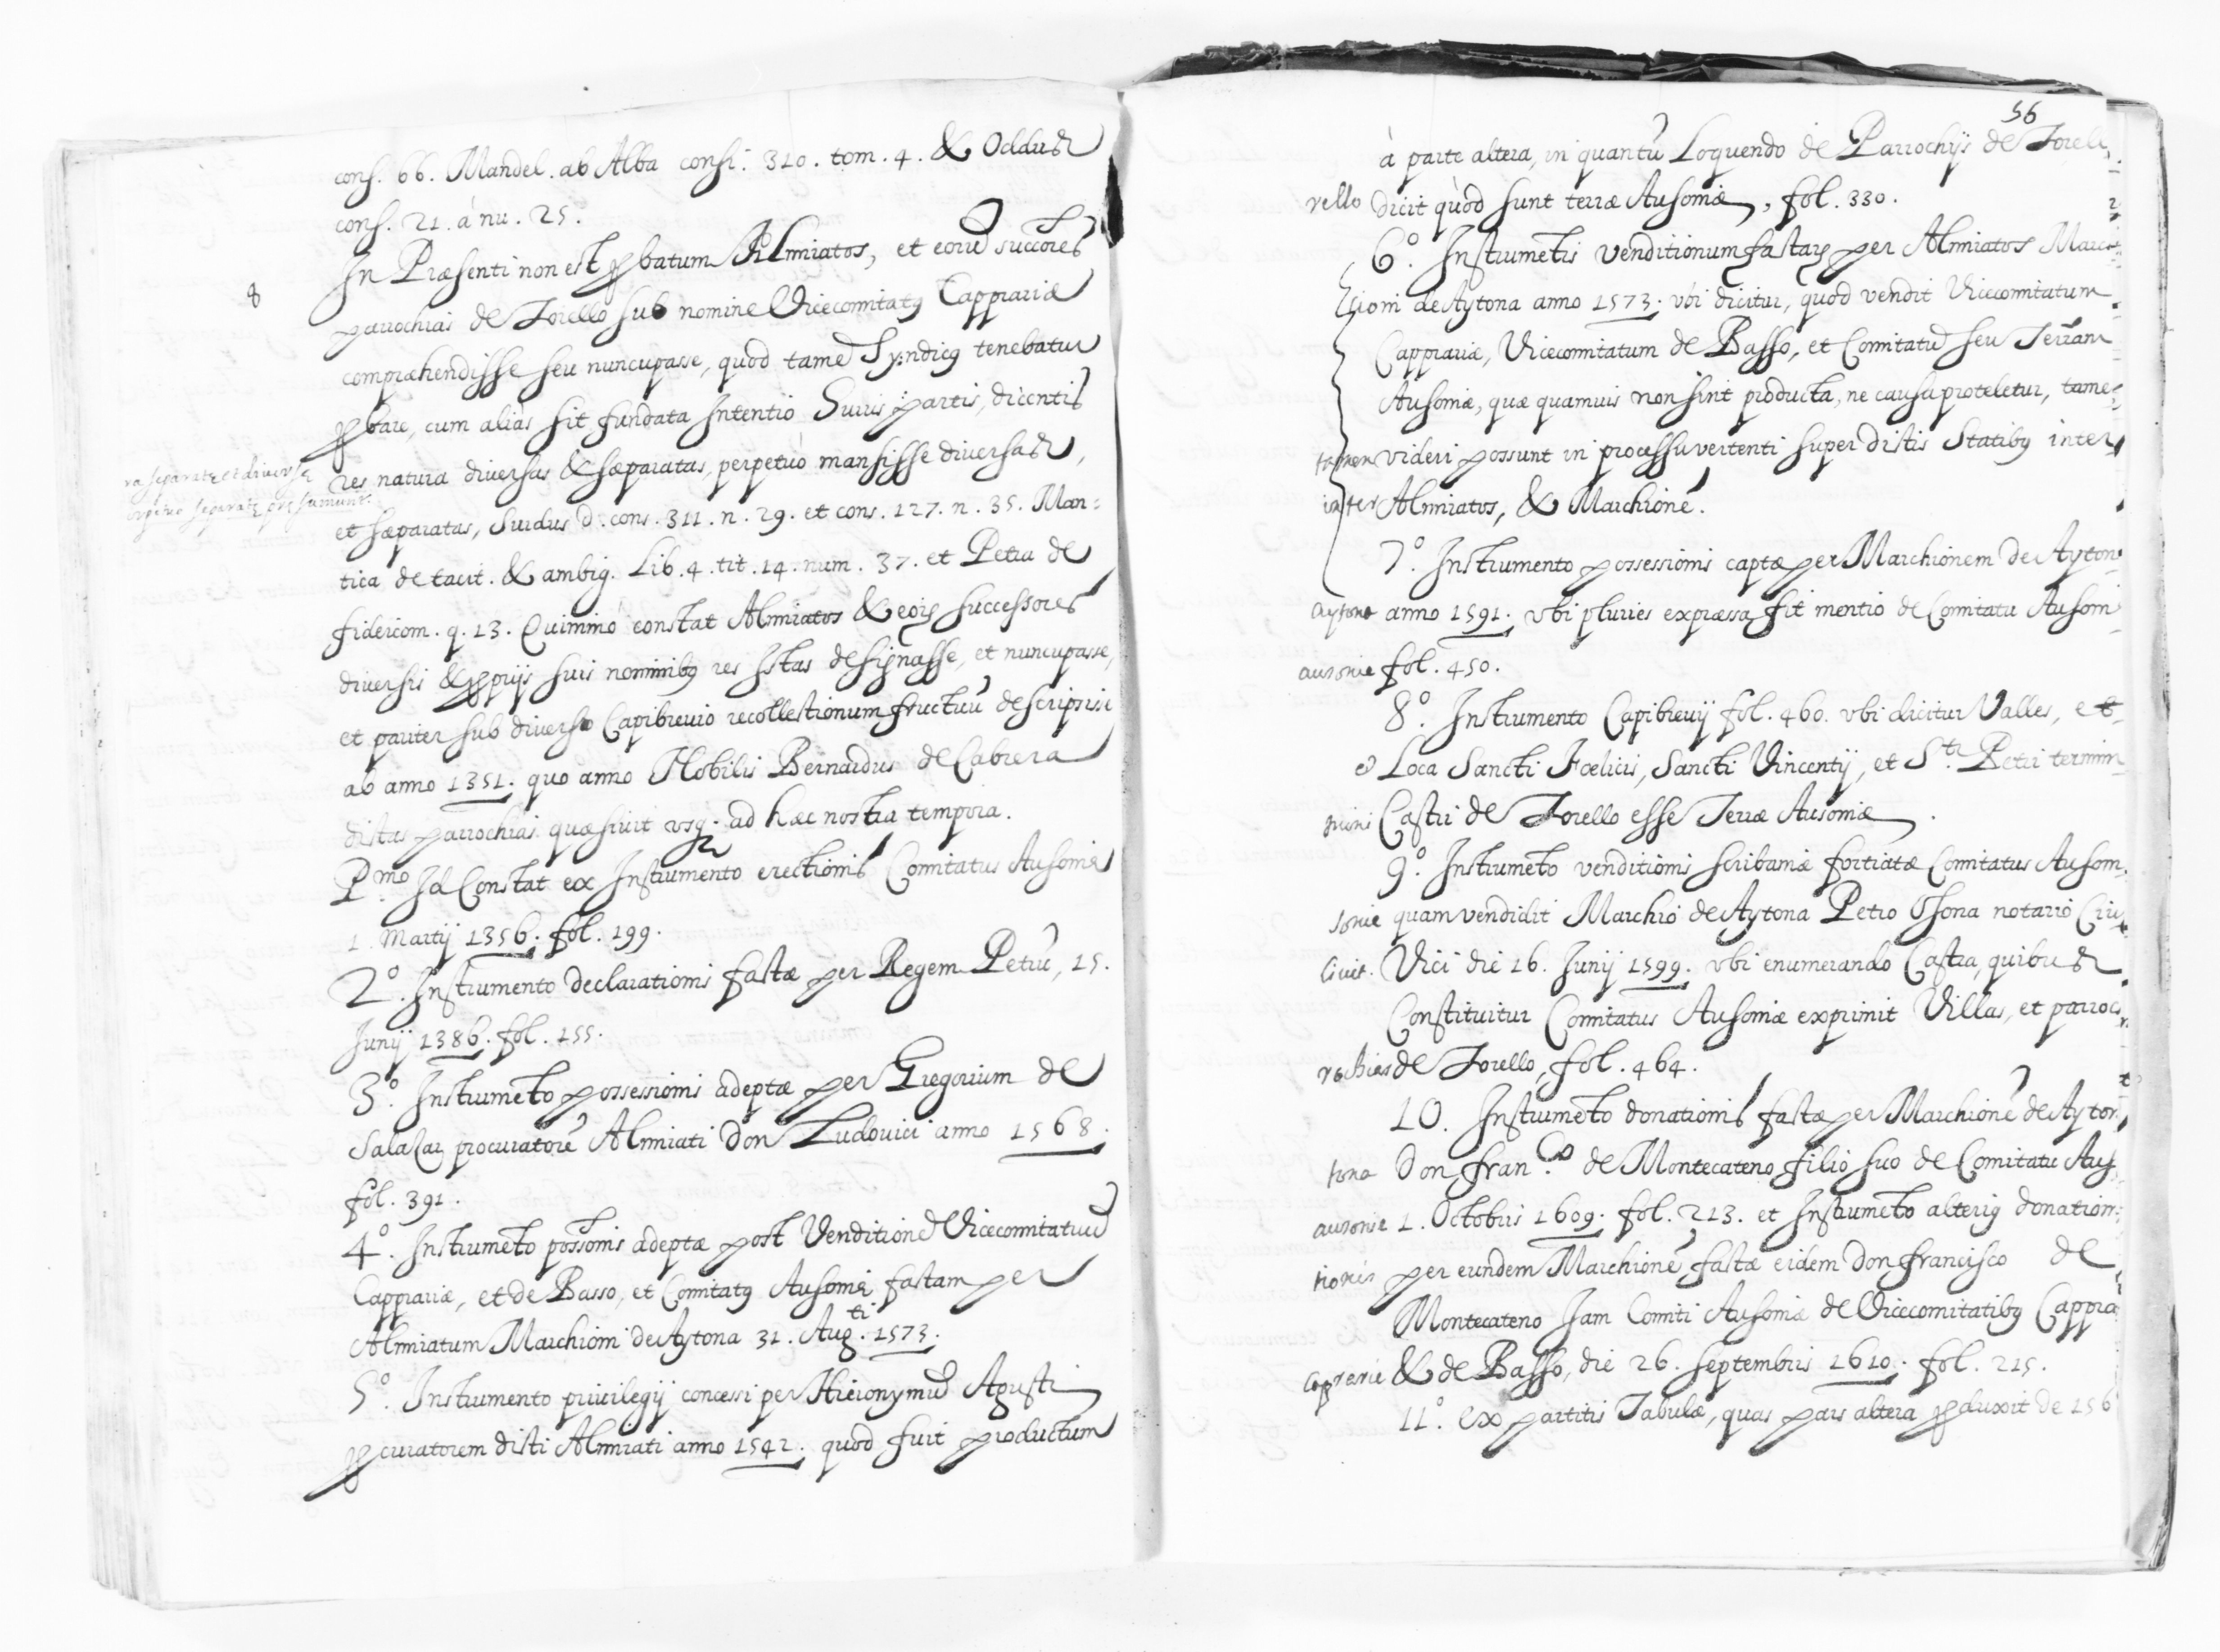 cons. 66. Mandel. ab Alba consi. 310. tom. 4. & Oddus
cons. 21. à nu. 25.
8
In Præsenti non est pbatum Almiatos, et eorũ succores
parrochias de Torello sub nomine Vicecomitatq Cappariæ
compræhendisse seu nuncupasse, quod tamẽ Syndicq tenebatur
pbare, cum aliàs sit fundata Intentio Suris partis, dicentis
ra separatę et diversę
res natura diversas & sæparatas, perpetuò mansisse diversas,
separatę pręsumunt.
et sæparatas, Surdus d. cons. 311. n. 29. et cons. 127. n. 35. Man-
tica de tacit. & ambig. Lib. 4. tit. 14. num. 37. et Petra de
fideicom. q. 13. Quimmò constat Almiatos & eoꝝ successores
diversis & ppriis suis nominibq res Istas desiǵnasse, et nuncupasse,
et pariter sub diverso Capibrevio recollectionum fructuũ descripsisse
ab anno 1351. quo anno Nobilis Bernardus de Cabrera
dictas parrochias quæsivit vsq. ad hæc nostra tempora.
P.mo Id Constat ex Instrumento erectionis Comitatus Ausoniæ
1. Martij 1356. fol. 199.
2º. Instrumento declarationis factæ per Regem Petrũ, 15.
Junij 1386. fol. 155.
3º. Instrumẽto possessionis adeptæ per Gregorium de
Salazar procuratorẽ Almiati Don Ludovici anno 1568.
fol. 391.
4º. Instrumẽto possonis adeptæ post Venditionẽ Vicecomitatuũ
Cappariæ, et de Basso, et Comitatq Ausonię factam per
Almiatum Marchioni de Aytona 31. Aug.ti 1573.
5º. Instrumento privilegij concessi per Hieronymũ Agusti
pcuratorem dicti Almirati anno 1542. quod fuit productum
56
à parte altera, in quantũ Loquendo de Parrochijs de Torell
rello dicit quòd sunt terræ Ausoniæ, fol. 330.
6º. Instrumẽtis venditionum factaꝝ per Almiatos March
chioni de Aytona anno 1573. vbi dicitur, quod vendit Vicecomitatum
Cappariæ, Vicecomitatum de Basso, et Comitatũ seu Terram
Ausoniæ, quæ quamvis non sint producta, ne causa proteletur, tame
tamen videri possunt in processu vertenti super dictis Statibq inter
inter Almiatos, & Marchionẽ.
7º. Instrumento possessionis captæ per Marchionem de Ayton
aytona anno 1591. vbi pluries expræssa fit mentio de Comitatu Ausoni
ausonie fol. 450.
8º. Instrumento Capibrevij fol. 460. vbi dicitur Valles, et
et Loca Sancti Fœlicis, Sancti Vincentij, et S.ti Petri termin
mini Castri de Torello esse Terræ Ausoniæ.
9º. Instrumẽto venditionis scribaniæ fortiatæ Comitatus Ausom
sonie quam vendidit Marchio de Aytona Petro Osona notario Civi
Civit. Vici die 16. Junij 1599. vbi enumerando Castra, quibus
Constituitur Comitatus Ausoniæ exprimit Villas, et parroc
rochias de Torello, fol. 464.
10. Instrumẽto donationis factæ per Marchionẽ de Ayton
tona Don Fran.co de Montecateno filio suo de Comitatu Aus
ausonie 1. Octobris 1609. fol. 213. et Instrumẽto alteriq donation
tionis per eundem Marchionẽ factæ eidem Don Francisco de
Montecateno Jam Comiti Ausoniæ de Vicecomitatibq Cappra
caprarie & de Basso, die 26. Septembris 1610. fol. 215.
11º. ex partitis Tabulæ, quas pars altera pduxit de 156